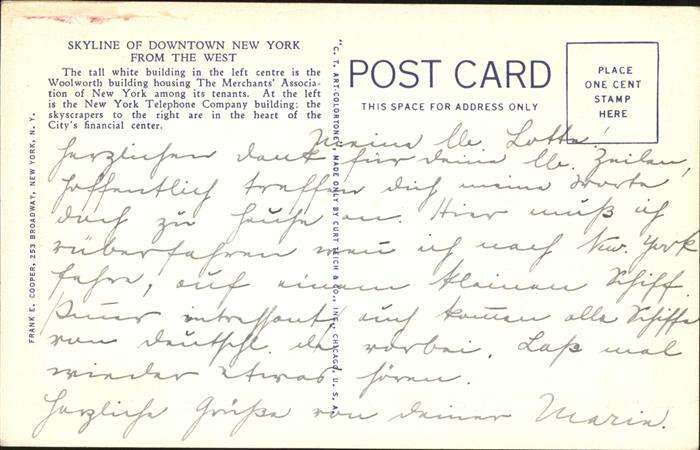 SKYLINE OF DOWNTOWN NEW YORK
FROM THE WEST
The tall white building in the left centre is the
Woolworth building housing The Merchants' Associa-
tion of New York among its tenants. At the left
is the New York Telephone Company building; the
skyscrapers to the right are in the heart of the
City's financial center.
FRANK E. COOPER, 253 BROADWAY, NEW YORK, N. Y.
"C. T. ART-COLORTONE", MADE ONLY BY CURT TEICH & CO., INC., CHICAGO, U. S. A.
POST CARD
THIS SPACE FOR ADDRESS ONLY
PLACE
ONE CENT
STAMP
HERE
Meine lb. Lotte!
Herzlichen dank für deine lb. Zeilen,
hoffentlich treffen dich meine Worte
doch zu hause an. Hier muß ich
rüberfahren wen ich nach Nw. York
fahre, auf einem kleinen Schiff
intressant auch komen alle Schiffe
von deutschl. da vorbei. Laß mal
wieder etwas hören.
Herzliche Grüße von deiner Marie.